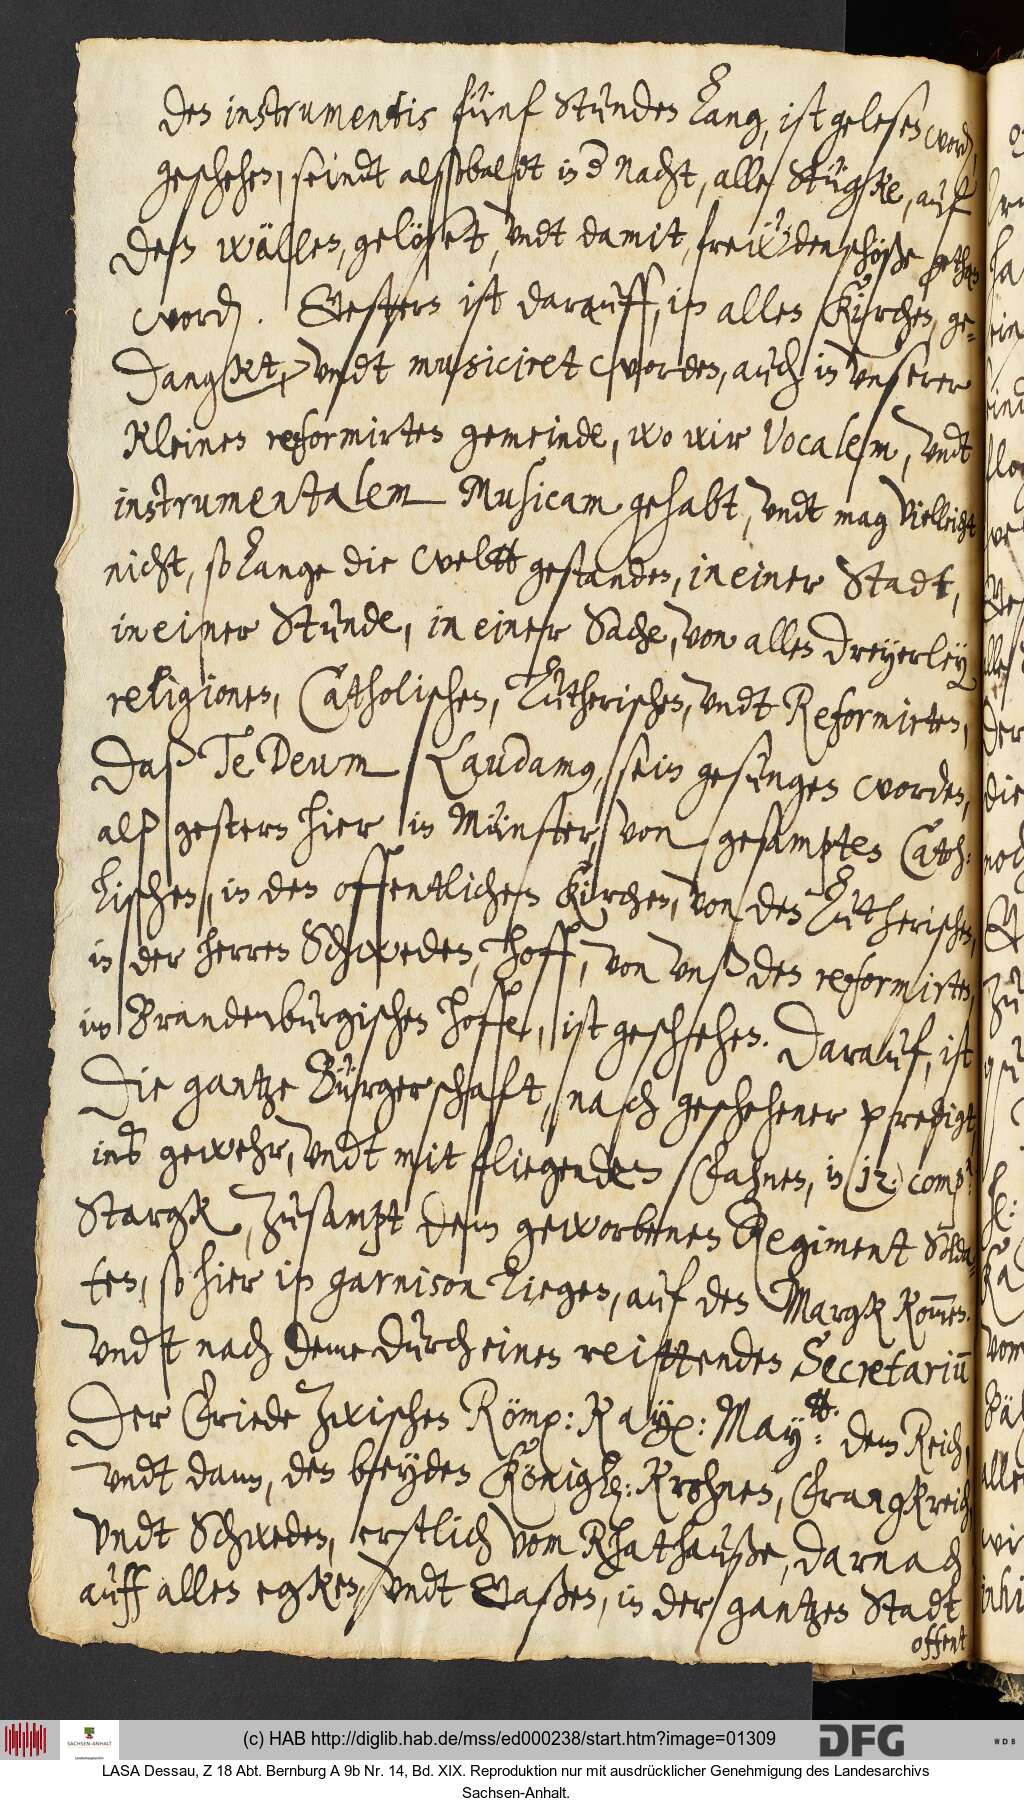 den instrumentis fünf stunden lang, ist gelesen word,
geschehen, seindt alßobaldt in d nacht, alle Stügke, auf
den wällen, gelöset, undt damit, freudenschöße gethan
word. Gestern ist darauff, in allen Kirchen, ge-
dangket, undt musiciret worden, auch in unserer
kleinen reformirten gemeinde, wo wir Vocalem, undt
instrumentalem Musicam gehabt, undt mag Vielleicht
nicht, so lange die weltt gestanden, in einer Stadt,
in einer Stunde, in einer Sache, von allen dreyerley
religionen, Catholischen, Lutherischen, undt Reformirten,
daß Te Deum Laudamus, sein gesungen worden,
alß gestern hier in Münster, von gesampten Catho-
lischen, in den offentlichen Kirchen, von den Lutherischen,
in der herren Schweden, hoff, von unß den reformirten,
im Brandenburgischen hoffe, ist geschehen. Darauf, ist
Die gantze Bürgerschaft, nach geschehener predigt
ins gewehr, undt mit fliegenden Fahnen, in (12.) comp:
Stargk, zusampt dem geworbenen Regiment Solda-
ten, so hier in garnison liegen, auf den Margk kommen.
undt nach deme durch einen reittenden Secretarium
Der Friede zwischen Römp: Kayp: Maytt: dem Reich,
undt dann, den beyden Königl: Krohnen, Frangkreich,
undt Schweden, erstlich vom Rhathauße, darnach
auff allen egken, undt Gaßen, in der gantzen Stadt
offent
(c) HAB http://diglib.hab.de/mss/ed000238/start.htm?image=01309
SACHSEN-ANHALT
DFG
WDB
LASA Dessau, Z 18 Abt. Bernburg A 9b Nr. 14, Bd. XIX. Reproduktion nur mit ausdrücklicher Genehmigung des Landesarchivs
Sachsen-Anhalt.